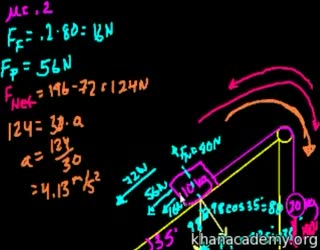 μc .2
FF = .2·80 = 16N
Fp = 56N
FNet = 196-72 = 124N
124 = 30·a
a = 124/30
= 4.13 m/s²
FN=80N
72N
56N
16N
10kg
98cos35°=80
98
20
35°
khanacademy.org